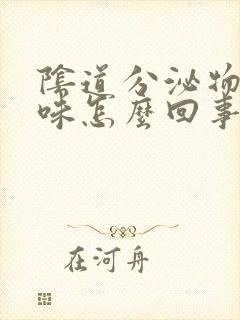 陰道分泌物
味怎麼回事
在河舟